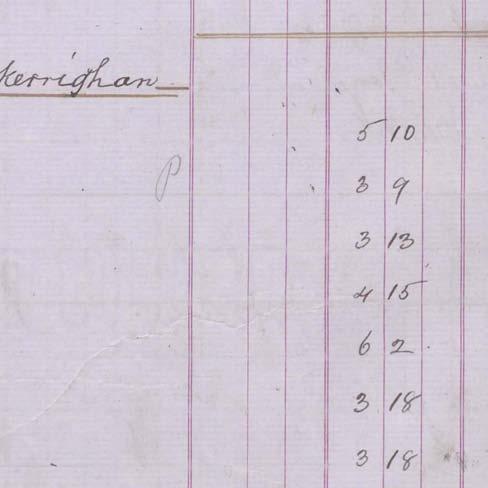 kerrighan
5 10
3 9
P
3 13
4 15
6 2
3 18
3 18